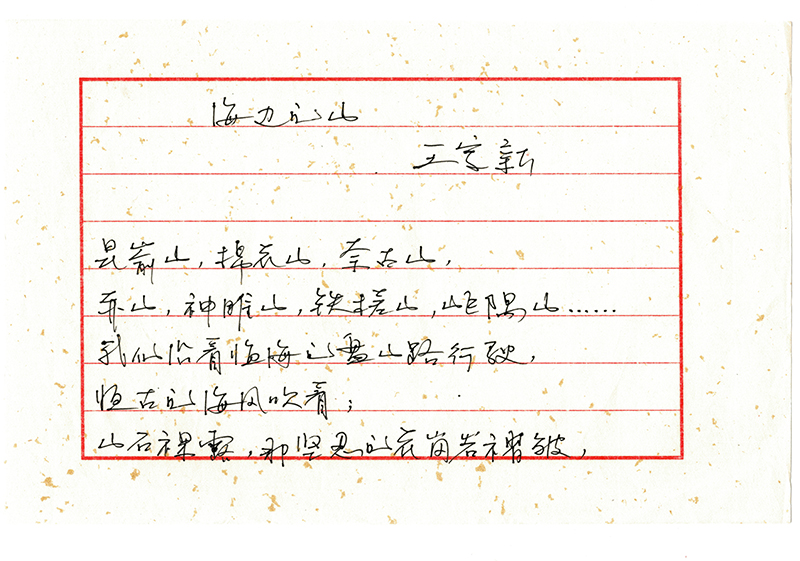 海边的山
王家新
昆嵛山，棉花山，古山，
山，神雕山，铁槎山，岠隅山……
我们沿着临海的盘山路行驶，
恒古的海风吹着；
山石裸露，那坚忍的花岗岩褶皱，